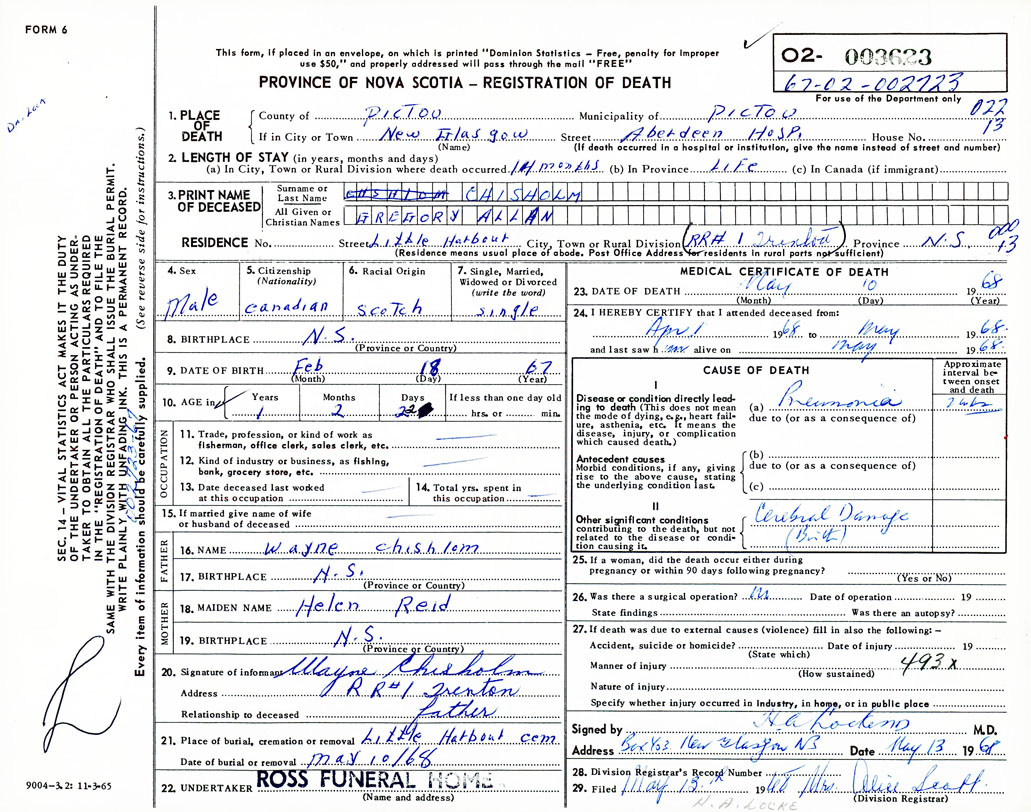 FORM 6
This form, if placed in an envelope, on which is printed "Dominion Statistics – Free, penalty for improper
use $50," and properly addressed will pass through the mail "FREE"
PROVINCE OF NOVA SCOTIA – REGISTRATION OF DEATH
02- 003623
67-02-002723
For use of the Department only
Dr. Lock
022
13
1. PLACE OF DEATH
County of PICTOU Municipality of PICTOU
If in City or Town New Glasgow Street Aberdeen Hosp. House No.
(Name) (If death occurred in a hospital or institution, give the name instead of street and number)
2. LENGTH OF STAY (in years, months and days)
(a) In City, Town or Rural Division where death occurred 14 months (b) In Province LIFE (c) In Canada (if immigrant)
3. PRINT NAME OF DECEASED
Surname or Last Name CHISHOLM
All Given or Christian Names GREGORY ALLAN
000
13
RESIDENCE No. Street Little Harbour City, Town or Rural Division (RR# 1 Trenton) Province N.S.
(Residence means usual place of abode. Post Office Address for residents in rural parts not sufficient)
4. Sex
Male
5. Citizenship
(Nationality)
canadian
6. Racial Origin
scotch
7. Single, Married,
Widowed or Divorced
(write the word)
single
8. BIRTHPLACE N.S.
(Province or Country)
9. DATE OF BIRTH Feb 18 67
(Month) (Day) (Year)
10. AGE in
Years
1
Months
2
Days
22
If less than one day old
hrs. or min.
OCCUPATION
11. Trade, profession, or kind of work as
fisherman, office clerk, sales clerk, etc.
12. Kind of industry or business, as fishing,
bank, grocery store, etc.
13. Date deceased last worked
at this occupation
14. Total yrs. spent in
this occupation
15. If married give name of wife
or husband of deceased
FATHER
16. NAME Wayne Chishlom
17. BIRTHPLACE N.S.
(Province or Country)
MOTHER
18. MAIDEN NAME Helen Reid
19. BIRTHPLACE N.S.
(Province or Country)
20. Signature of informant Wayne Chisholm
Address RR#1 Trenton
Relationship to deceased father
21. Place of burial, cremation or removal Little Harbour cem
Date of burial or removal may 10/68
22. UNDERTAKER ROSS FUNERAL HOME
(Name and address)
MEDICAL CERTIFICATE OF DEATH
23. DATE OF DEATH May 10 1968
(Month) (Day) (Year)
24. I HEREBY CERTIFY that I attended deceased from:
Apr 1 1968 to May 1968
and last saw him alive on May 1968.
CAUSE OF DEATH
Approximate
interval be-
tween onset
and death
I
Disease or condition directly lead-
ing to death (This does not mean
the mode of dying, e.g., heart fail-
ure, asthenia, etc. It means the
disease, injury, or complication
which caused death.)
(a) Pneumonia
due to (or as a consequence of)
Antecedent causes
Morbid conditions, if any, giving
rise to the above cause, stating
the underlying condition last.
(b)
due to (or as a consequence of)
(c)
II
Other significant conditions
contributing to the death, but not
related to the disease or condi-
tion causing it.
Cerebral Damage
(Birth)
25. If a woman, did the death occur either during
pregnancy or within 90 days following pregnancy?
(Yes or No)
26. Was there a surgical operation? Date of operation 19
State findings Was there an autopsy?
27. If death was due to external causes (violence) fill in also the following: –
Accident, suicide or homicide? Date of injury 19
(State which)
Manner of injury
(How sustained)
493x
Nature of injury
Specify whether injury occurred in industry, in home, or in public place
Signed by M.D.
Address Box 403 New Glasgow NS Date May 13 1968
28. Division Registrar's Record Number
29. Filed May 13 19 Mrs. Alice Scott
(Division Registrar)
H. A. LOCKE
SEC. 14 – VITAL STATISTICS ACT MAKES IT THE DUTY
OF THE UNDERTAKER OR PERSON ACTING AS UNDER-
TAKER TO OBTAIN ALL THE PARTICULARS REQUIRED
IN THE "REGISTRATION OF DEATH" AND TO FILE THE
SAME WITH THE DIVISION REGISTRAR WHO SHALL ISSUE THE BURIAL PERMIT.
WRITE PLAINLY WITH UNFADING INK. THIS IS A PERMANENT RECORD.
Every item of information should be carefully supplied. (See reverse side for instructions.)
9004-3.2: 11-3-65